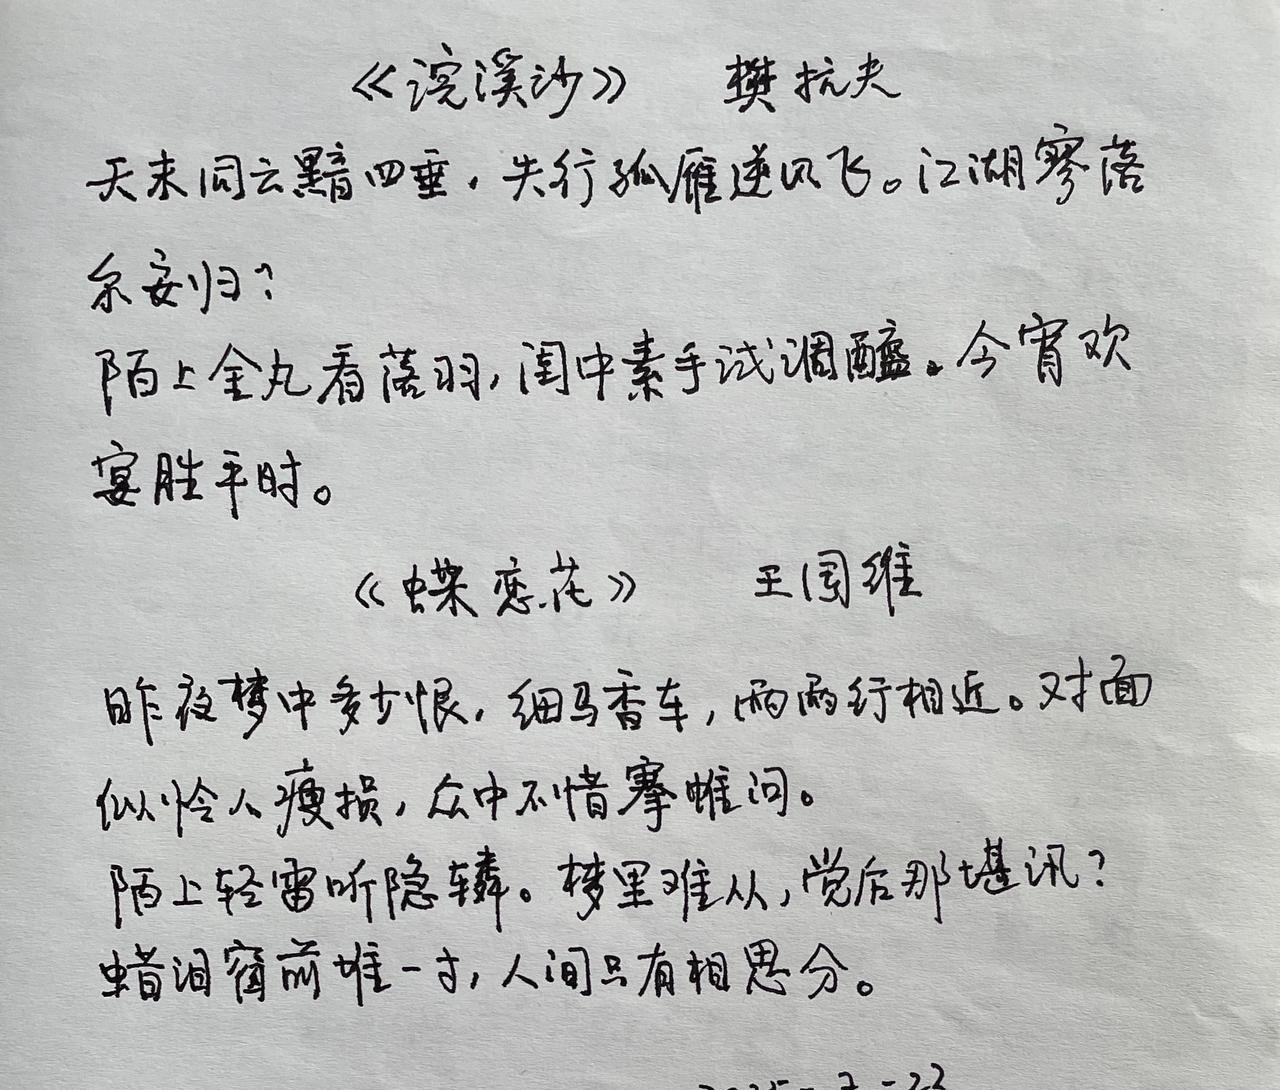 《浣溪沙》 樊抗夫
天末同云黯四垂，失行孤雁逆风飞。江湖寥落
尔安归？
陌上金丸看落羽，闺中素手试调醯。今宵欢
宴胜平时。
《蝶恋花》 王国维
昨夜梦中多少恨，细马香车，两两行相近。对面
似怜人瘦损，众中不惜搴帷问。
陌上轻雷听隐辚。梦里难从，觉后那堪讯？
蜡泪窗前堆一寸，人间只有相思分。